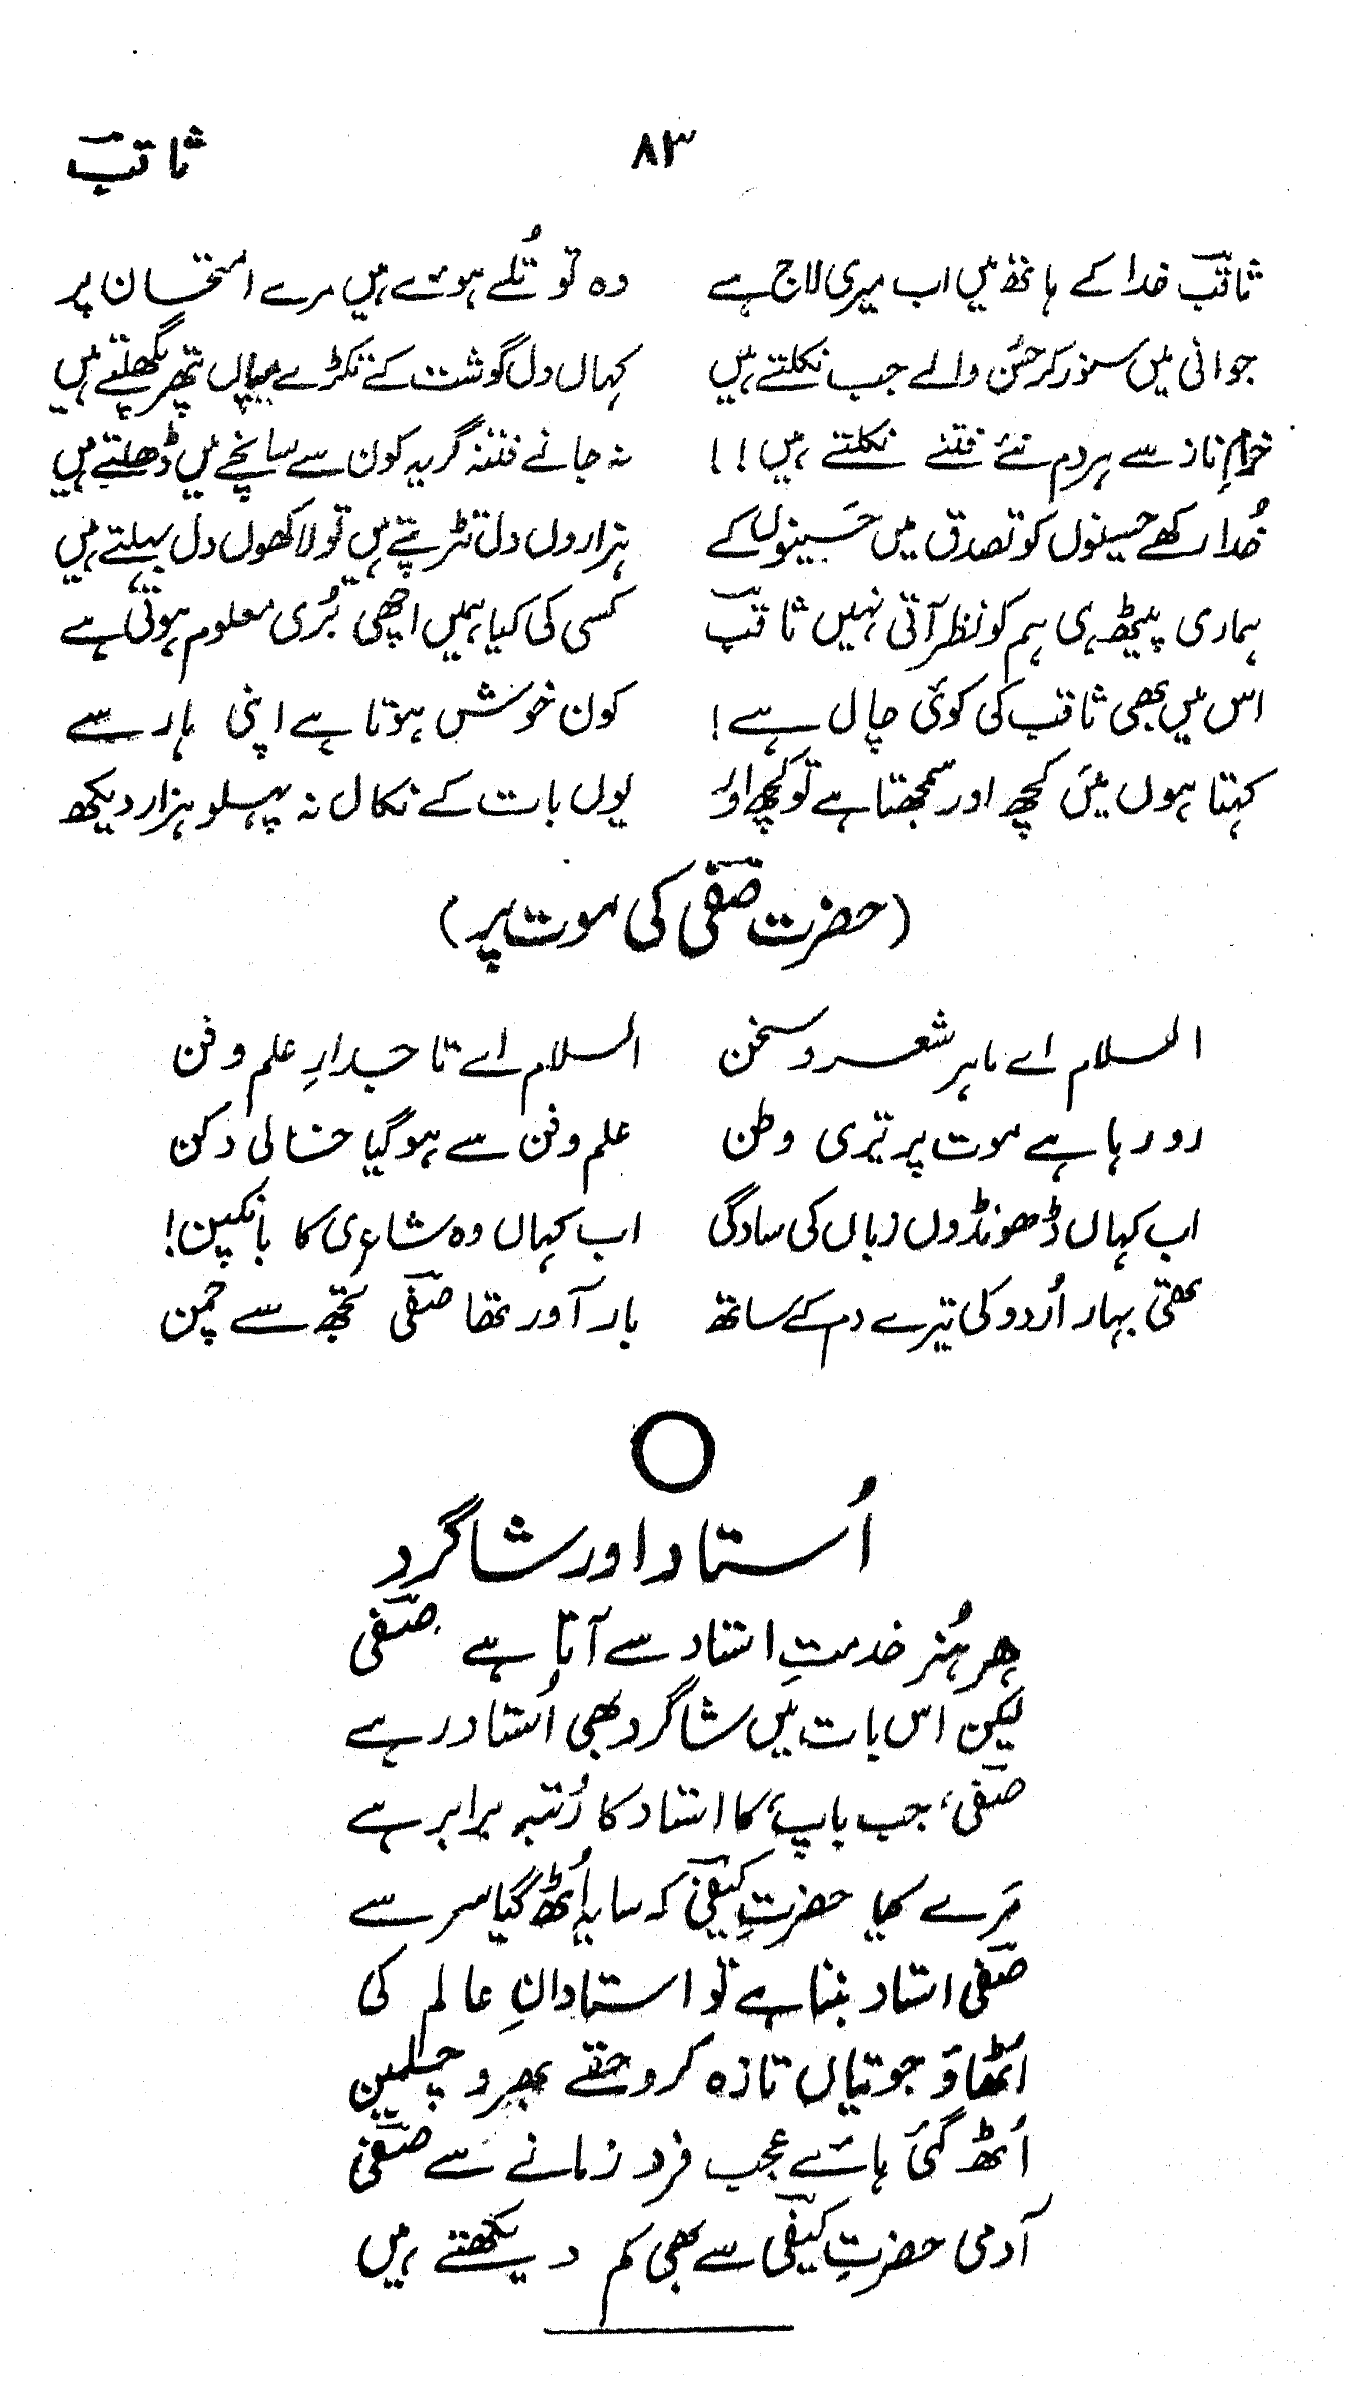 ۸۳ ثاقبؔ
ثاقبؔ خدا کے ہاتھ میں اب میری لاج ہے وہ تو تُلے ہوئے ہیں مرے امتحان پر
جوانی میں سنور کر حسُن والے جب نکلتے ہیں کہاں دل گوشت کے ٹکڑے میاں پتھر پگھلتے ہیں
خرامِ ناز سے ہر دم نئے فتنے نکلتے ہیں !! نہ جانے فتنہ گر یہ کون سے سانچے میں ڈھلتے ہیں
خُدا رکھے حسینوں کو تصدق میں حَسینوں کے ہزار دل دل تڑپتے ہیں تو لاکھوں دل بہلتے ہیں
ہماری پیٹھ ہی ہم کو نظر آتی نہیں ثاقبؔ کسی کی کیا ہمیں اچھی بُری معلوم ہوتی ہے
اس میں بھی ثاقب کی کوئی چال ہے ! کون خوش ہوتا ہے اپنی ہار سے
کہتا ہوں میَں کُچھ اور سمجھتا ہے تو کُچھ اور یوں بات کے نکال نہ پہلو ہزار دیکھ
(حضرت صفیؔ کی موت پر)
السلام اے ماہر شعر و سخن السلام اے تاجدارِ علم و فن
رو رہا ہے موت پر تیری وطن علم و فن سے ہوگیا خالی دکن
اب کہاں ڈھونڈوں زباں کی سادگی اب کہاں وہ شاعری کا بانکپن!
تھی بہار اُردو کی تیرے دم کے ساتھ بار آور تھا صفیؔ تجھ سے چمن
اُستاد اور شاگرد
ہر ہُنر خدمتِ استاد سے آتا ہے صفیؔ
لیکن اس بات میں شاگرد بھی اُستاد رہے
صفیؔ، جب باپ کا استاد کا رُتبہ برابر ہے
مَرے کیا حضرتِ کیفیؔ کہ سایہ اُٹھ گیا سر سے
صفیؔ استاد بننا ہے تو استادانِ عالم کی
اُٹھاؤ جوتیاں تازہ کرو حقے بھرو چلمیں
اُٹھ گئی ہائے عجب فرد زمانے سے صفیؔ
آدمی حضرتِ کیفیؔ سے بھی کم دیکھتے ہیں